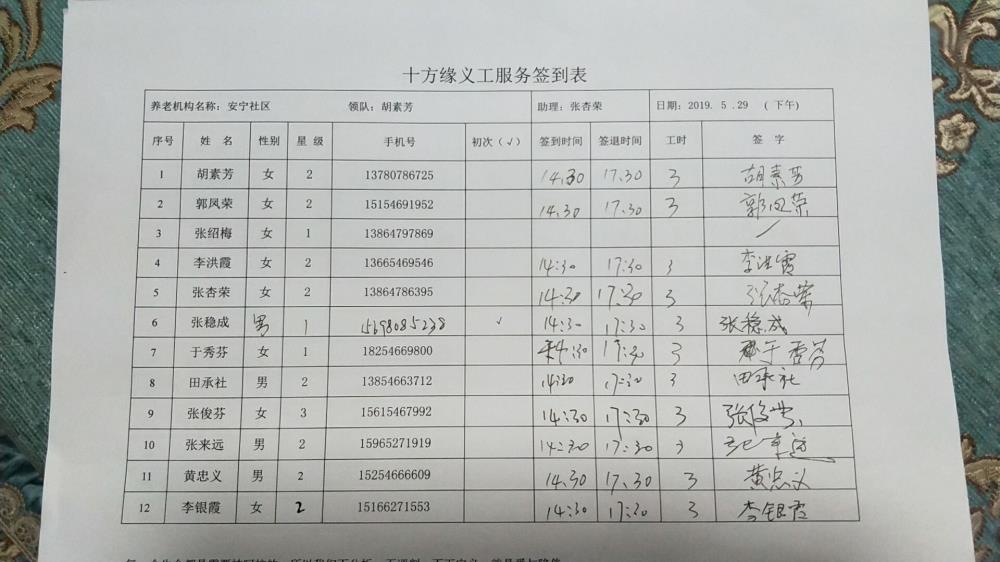 十方缘义工服务签到表
养老机构名称：安宁社区 领队：胡素芳 助理：张杏荣 日期：2019．5．29 （下午）
序号 姓名 性别 星级 手机号 初次（√） 签到时间 签退时间 工时 签字
1 胡素芳 女 2 13780786725 14.30 17.30 3 胡素芳
2 郭凤荣 女 2 15154691952 14:30 17.30 3 郭凤荣
3 张绍梅 女 1 13864797869 /
4 李洪霞 女 2 13665469546 14:30 17:30 3 李洪霞
5 张杏荣 女 2 13864786395 14:30 17:30 3 张杏荣
6 张稳成 男 1 15698085238 √ 14:30 17:30 3 张稳成
7 于秀芬 女 1 18254669800 14:30 17:30 3 于秀芬
8 田承社 男 2 13854663712 14:30 17:30 3 田承社
9 张俊芬 女 3 15615467992 14:30 17:30 3 张俊芬
10 张来远 男 2 15965271919 14:30 17:30 3 张来远
11 黄忠义 男 2 15254666609 14.30 17.30 3 黄忠义
12 李银霞 女 2 15166271553 14:30 17:30 3 李银霞